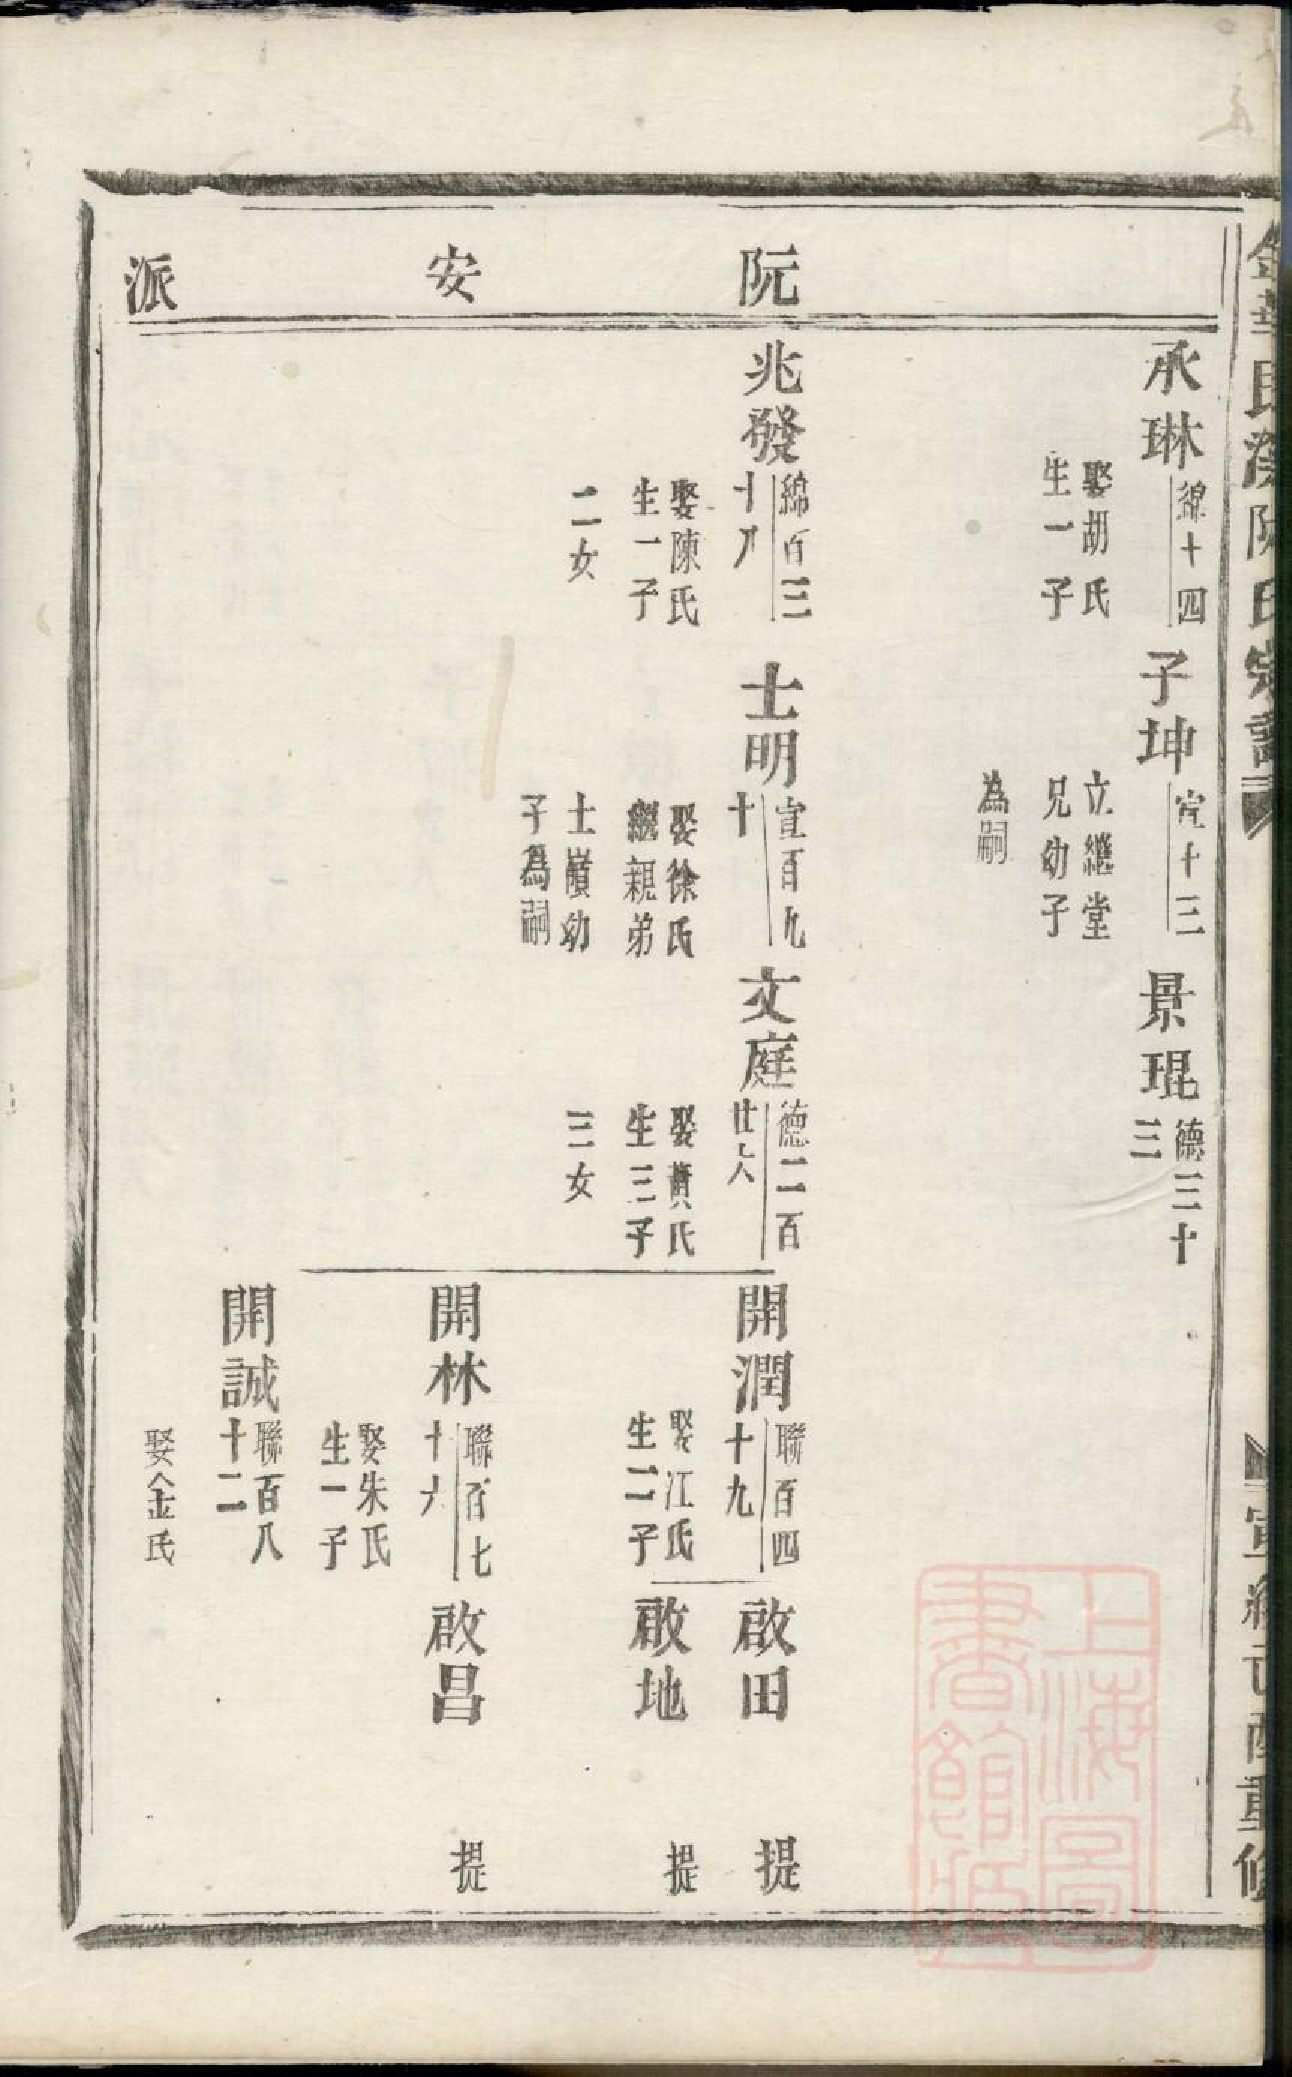 阮安派
承琳
綿十四
娶胡氏
生一子
子坤
宣十三
立繼堂
兄幼子
為嗣
景琨
德三十
三
兆發
綿百三
十八
娶陳氏
生一子
二女
士明
宣百九
十
娶徐氏
繼親弟
士嶺幼
子為嗣
文庭
德二百
廿六
娶黃氏
生三子
三女
開潤
聯百四
十九
娶江氏
生二子
啟田
提
啟地
提
開林
聯百七
十六
娶朱氏
生一子
啟昌
提
開誠
聯百八
十二
娶金氏
宣統己酉重修
上海圖
書館藏